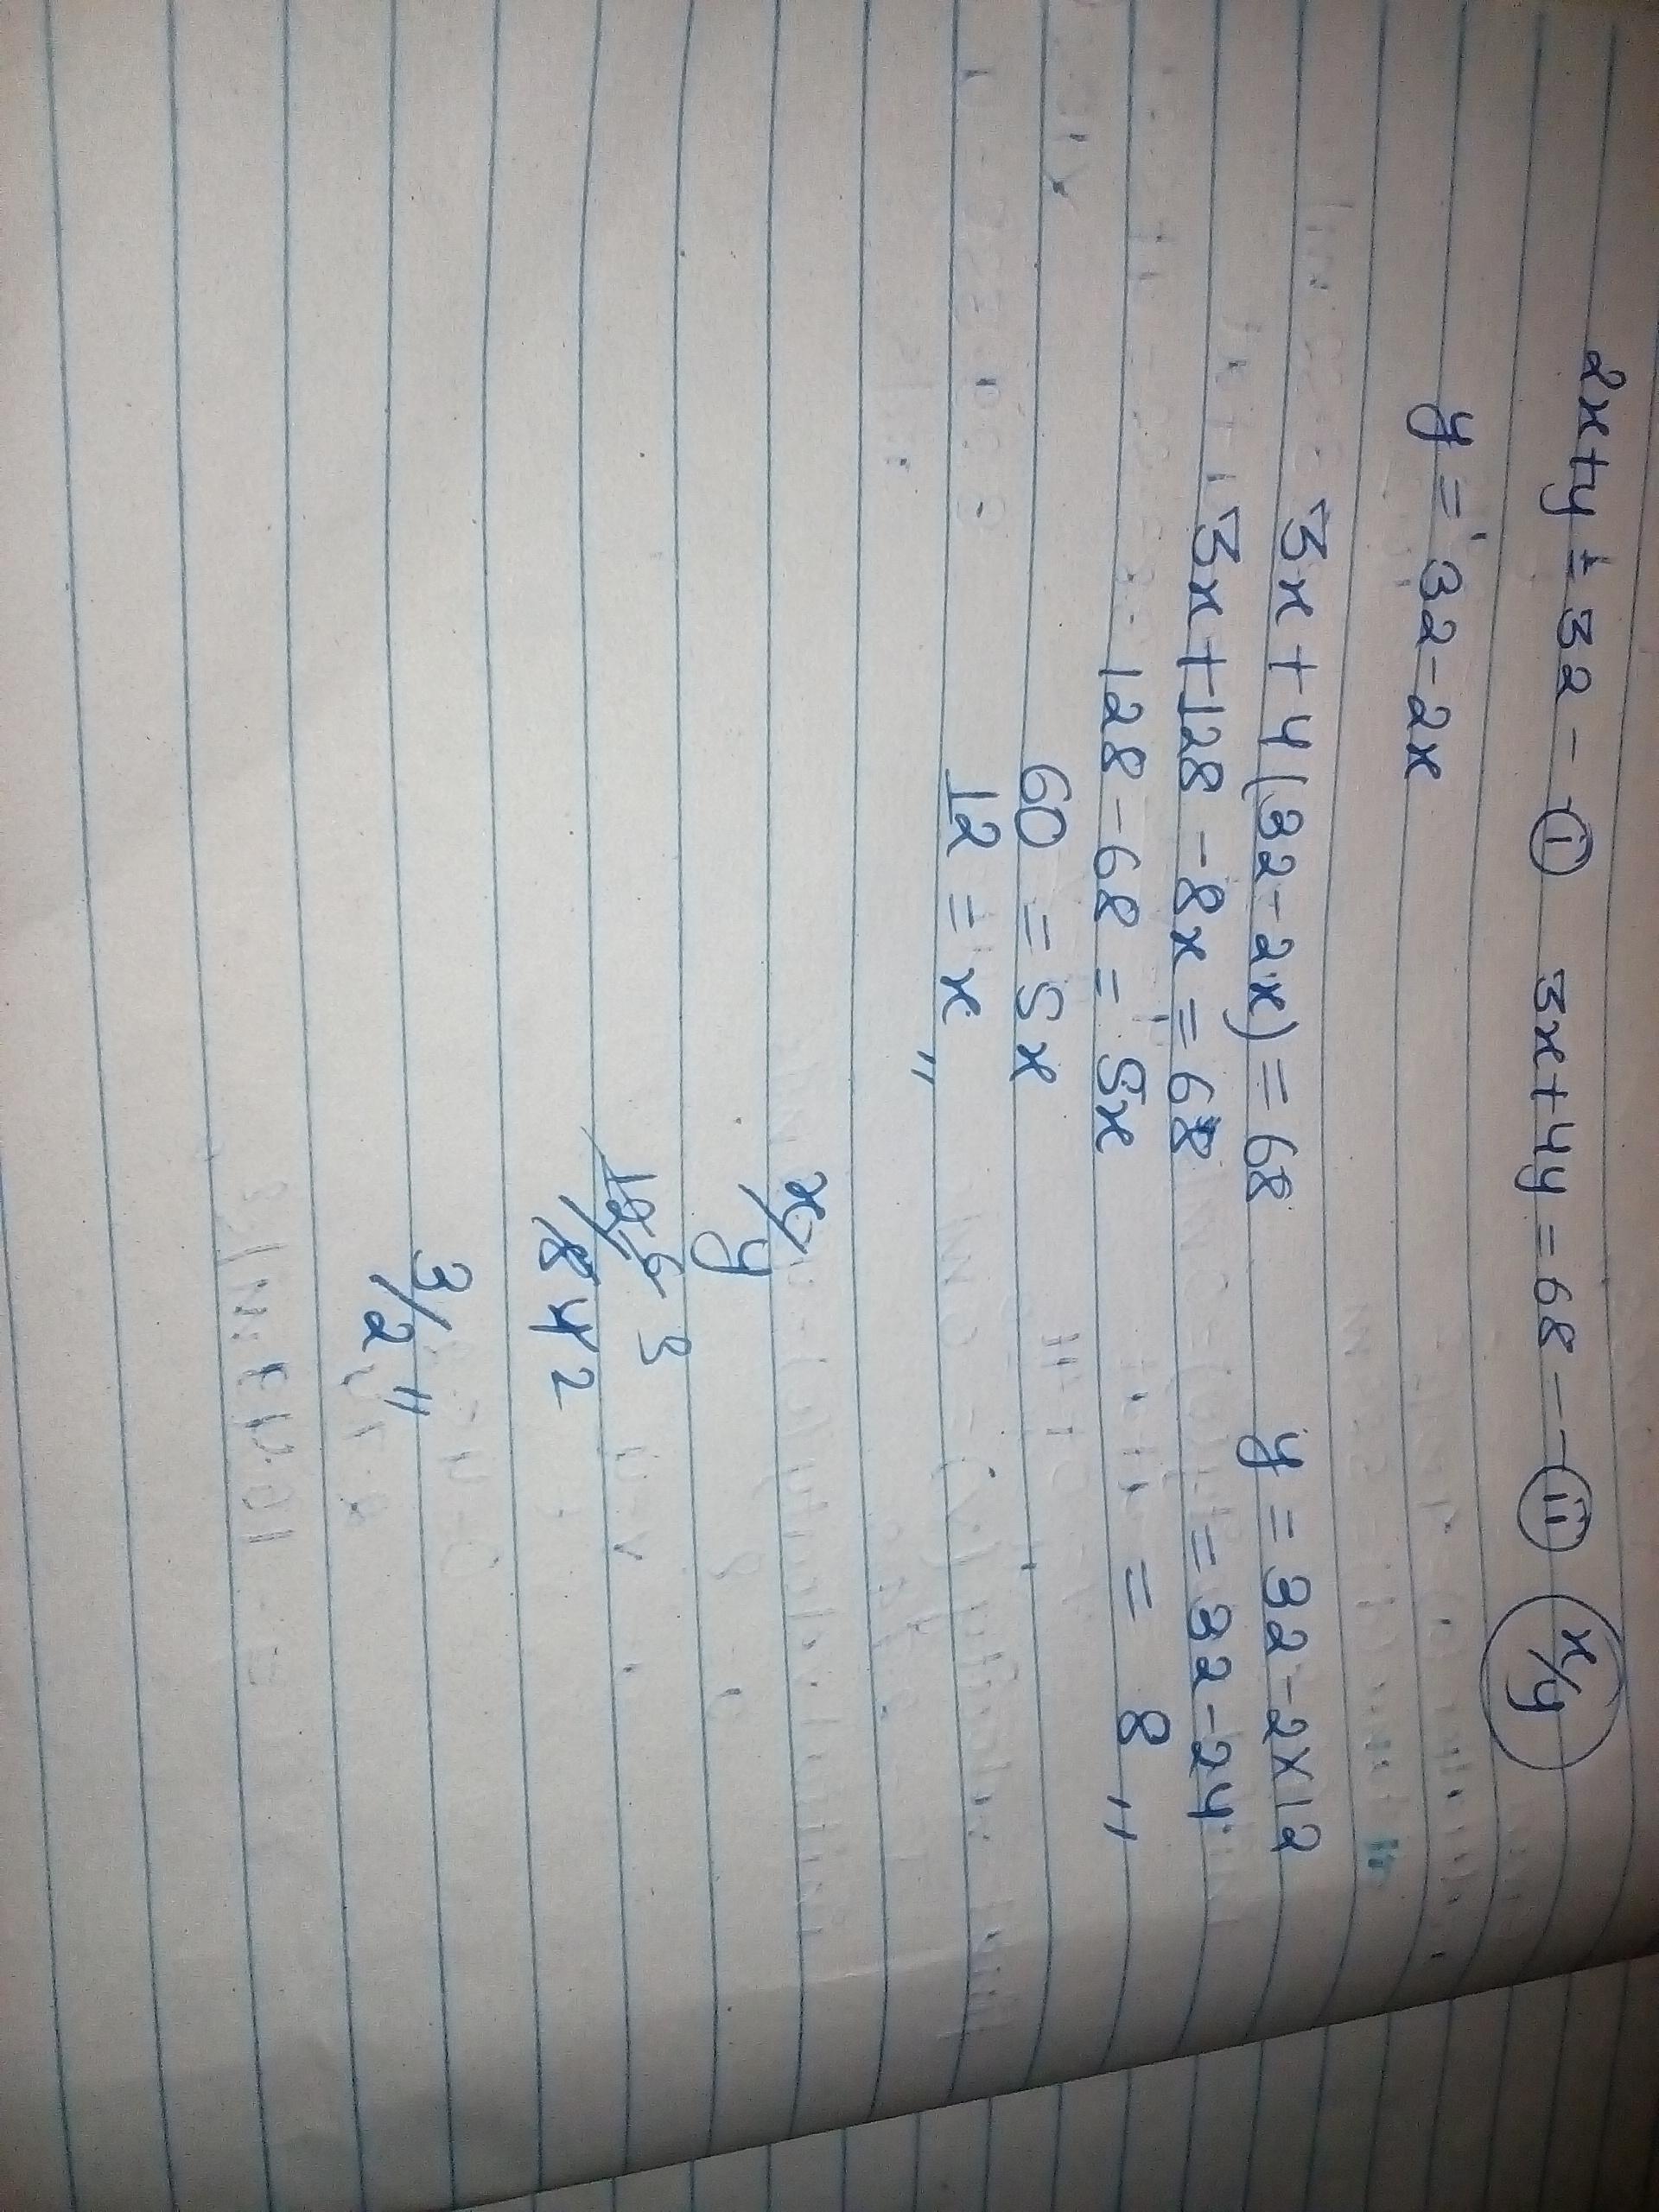 2x+y = 32 - (i) 3x+4y = 68 -- (ii) x/y
y = 32-2x
3x + 4(32-2x) = 68 y = 32-2x12
3x+128 -8x = 68 = 32-24
128-68 = 5x = 8 "
60 = 5x
12 = x "
x/y
12/8 6/4 3/2
3/2 "